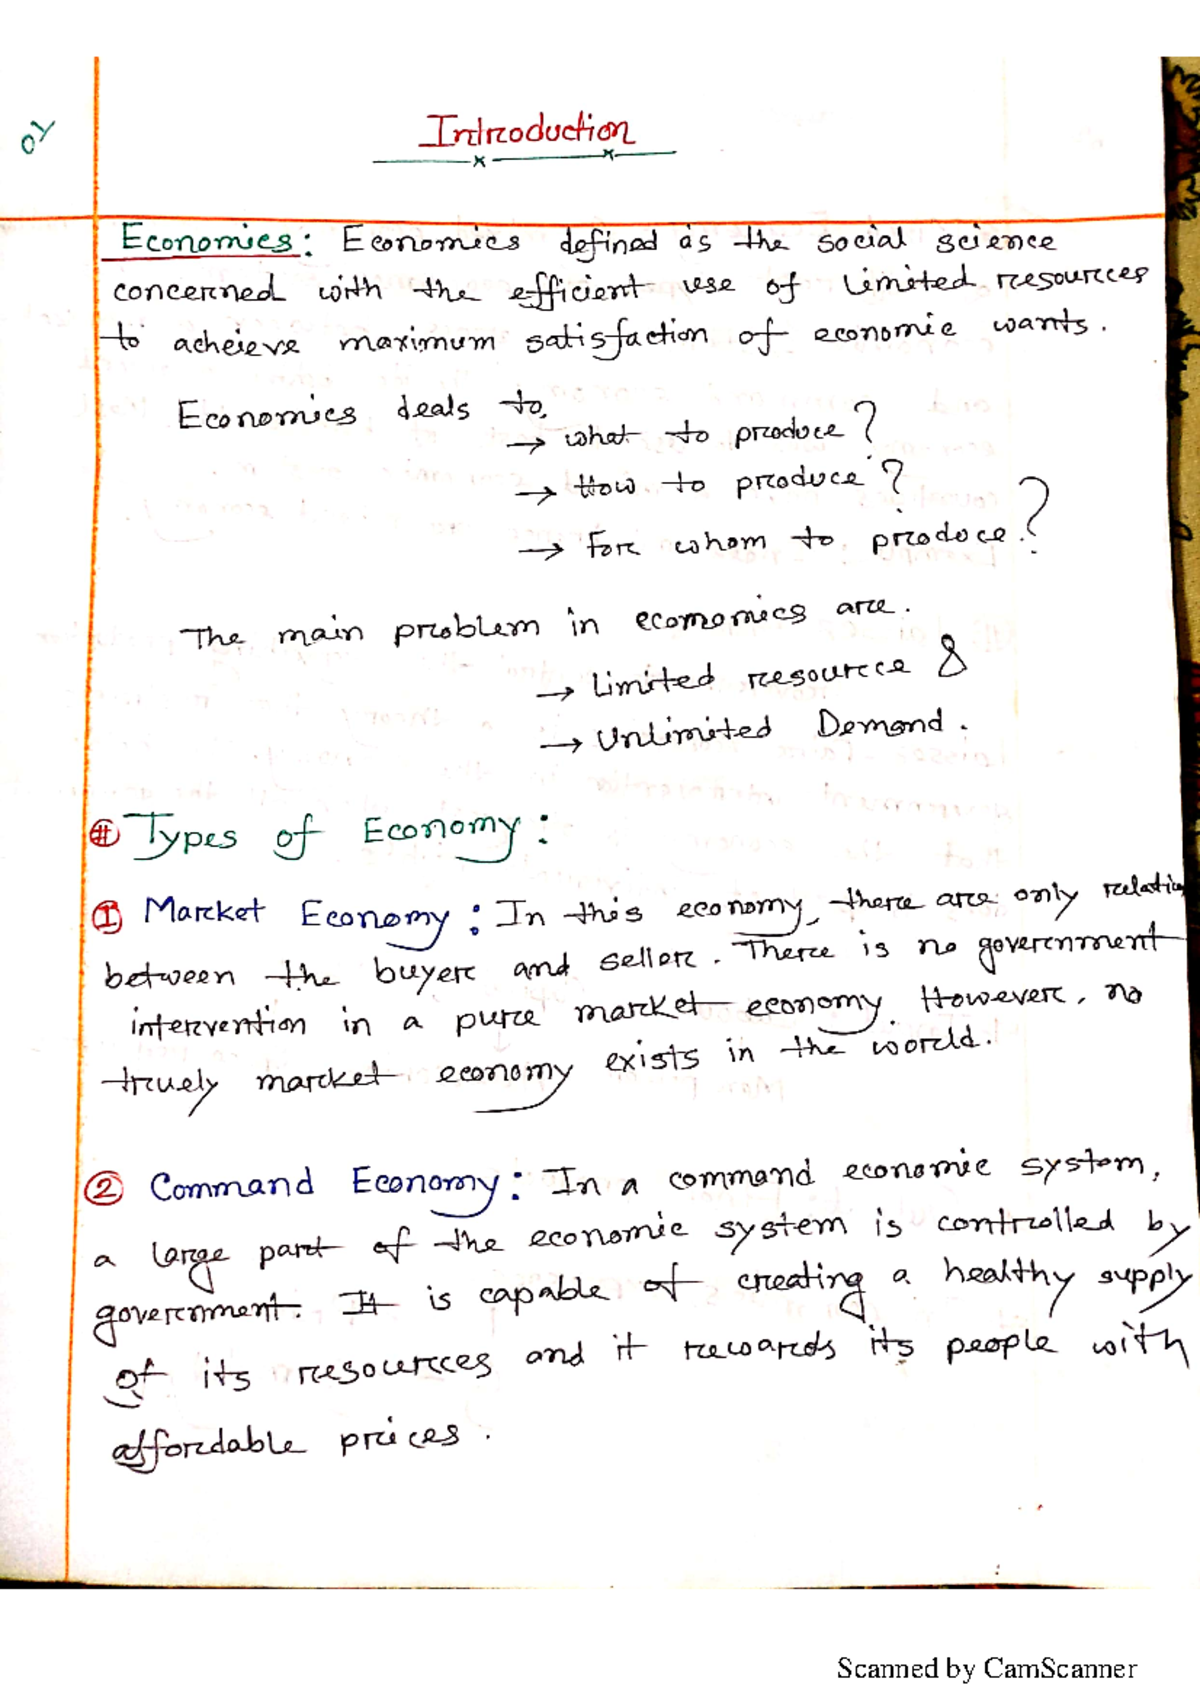 OY
Introduction
Economics: Economics defined as the social science
concerned with the efficient use of limited resources
to acheieve maximum satisfaction of economic wants.
Economics deals to,
→ what to produce?
→ How to produce?
→ For whom to produce?
The main problem in economics are.
→ Limited resource &
→ Unlimited Demand.
# Types of Economy:
① Market Economy: In this economy, there are only relation
between the buyer and seller. There is no government
intervention in a pure market economy. However, no
truely market economy exists in the world.
② Command Economy: In a command economic system,
a large part of the economic system is controlled by
government. It is capable of creating a healthy supply
of its resources and it rewards its people with
affordable prices.
Scanned by CamScanner